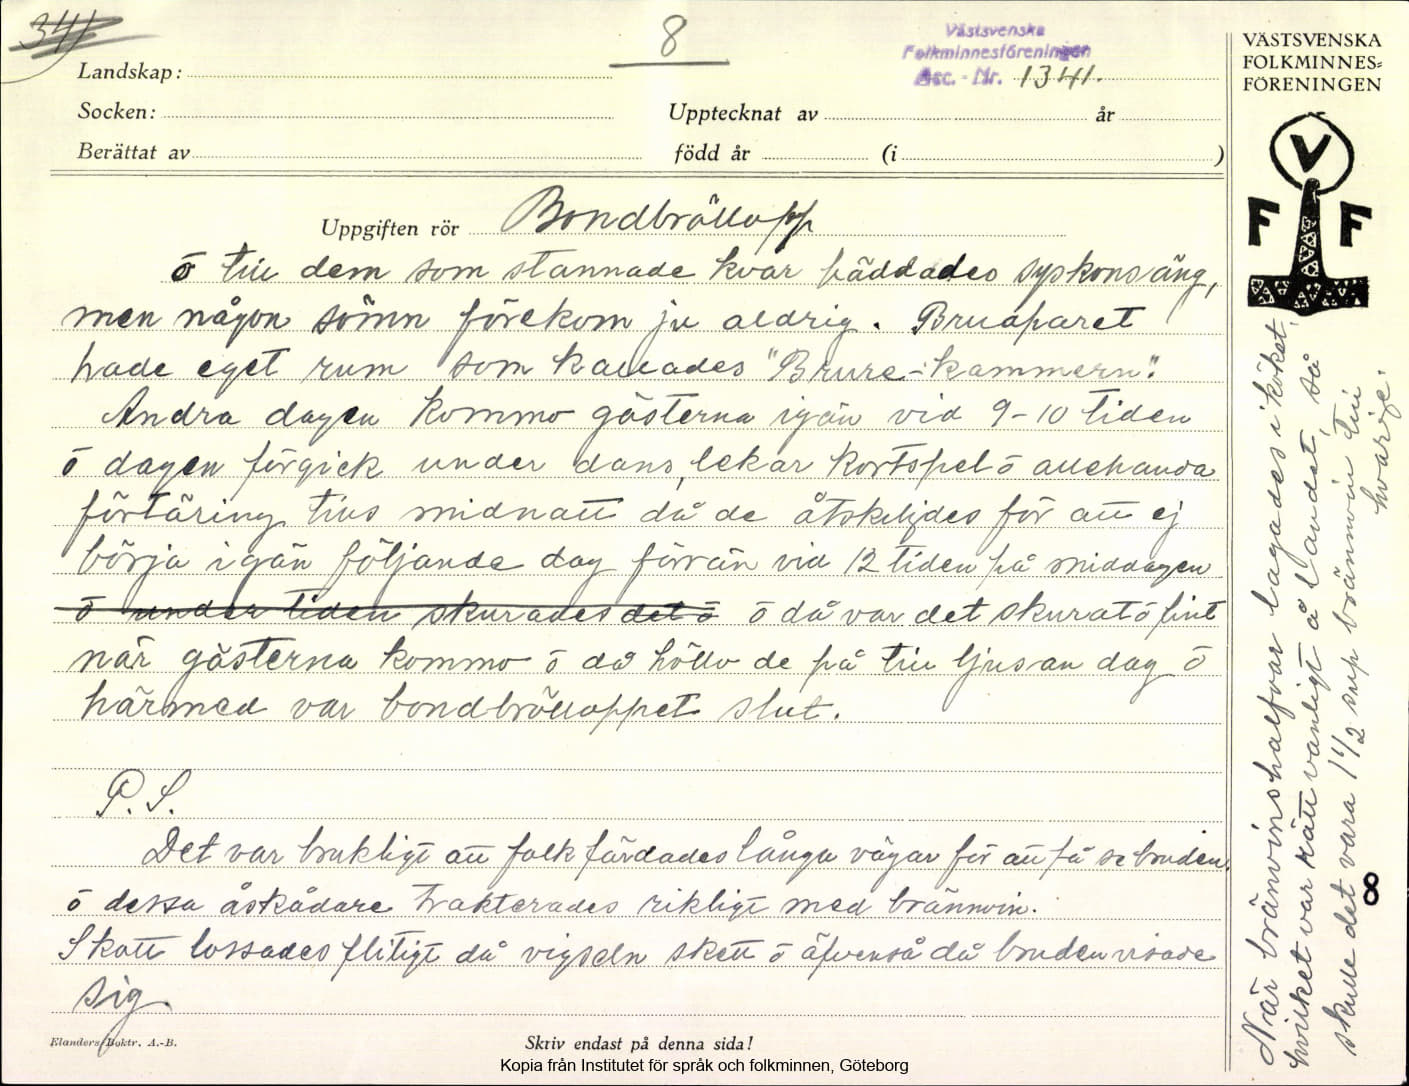 341
8
Västsvenska
Folkminnesföreningen
Acc. - Nr. 1341.
Landskap:
Socken:
Upptecknat av år
Berättat av född år (i )
VÄSTSVENSKA
FOLKMINNES-
FÖRENINGEN
V
F F
Uppgiften rör Bondbröllopp
ō till dem som stannade kvar bäddades syskonsäng,
men någon sömn förekom ju aldrig. Brudparet
hade eget rum som kallades "Brure-kammern".
Andra dagen kommo gästerna igän vid 9-10 tiden
ō dagen förgick under dans, lekar kortspel ō allehanda
förtäring tills midnatt då de åtskiljdes för att ej
börja igän följande dag förrän vid 12 tiden på middagen
ō under tiden skurades det ō ō då var det skurat ō fint
när gästerna kommo ō då höllo de på till ljusan dag ō
härmed var bondbrölloppet slut.
P.S.
Det var brukligt att folk färdades långa vägar för att få se bruden.
ō dessa åskådare trakterades rikligt med brännvin.
Skott lossades flitigt då vigseln skett ō äfvenså då bruden visade
sig.
När brännvinshalfvar lagades i köket,
hvilket var rätt vanligt å landet, så
skulle det vara 1 1/2 sup brännvin till
hvarje.
8
Elanders Boktr. A.-B.
Skriv endast på denna sida!
Kopia från Institutet för språk och folkminnen, Göteborg